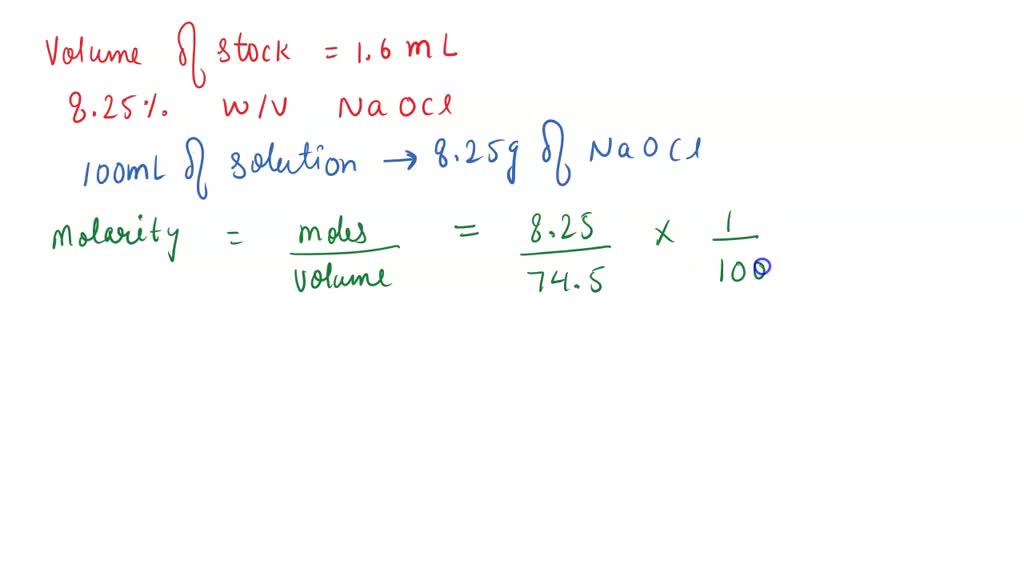 Volume of stock = 1.6 mL
8.25% w/v NaOCl
100mL of solution → 8.25g of NaOCl
Molarity = moles/volume = 8.25/74.5 x 1/100